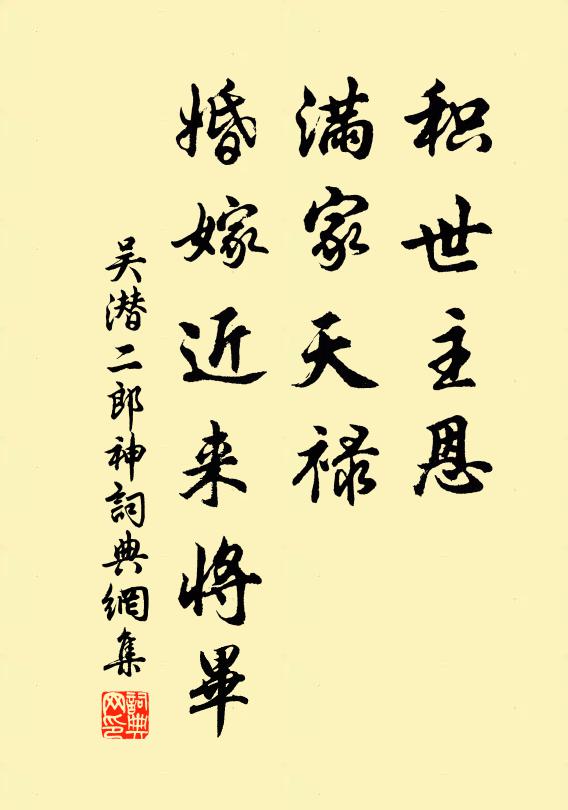 积世主恩
满家天禄
婚嫁近来将畢
吴潜二郎神詞典網集
詞典网印